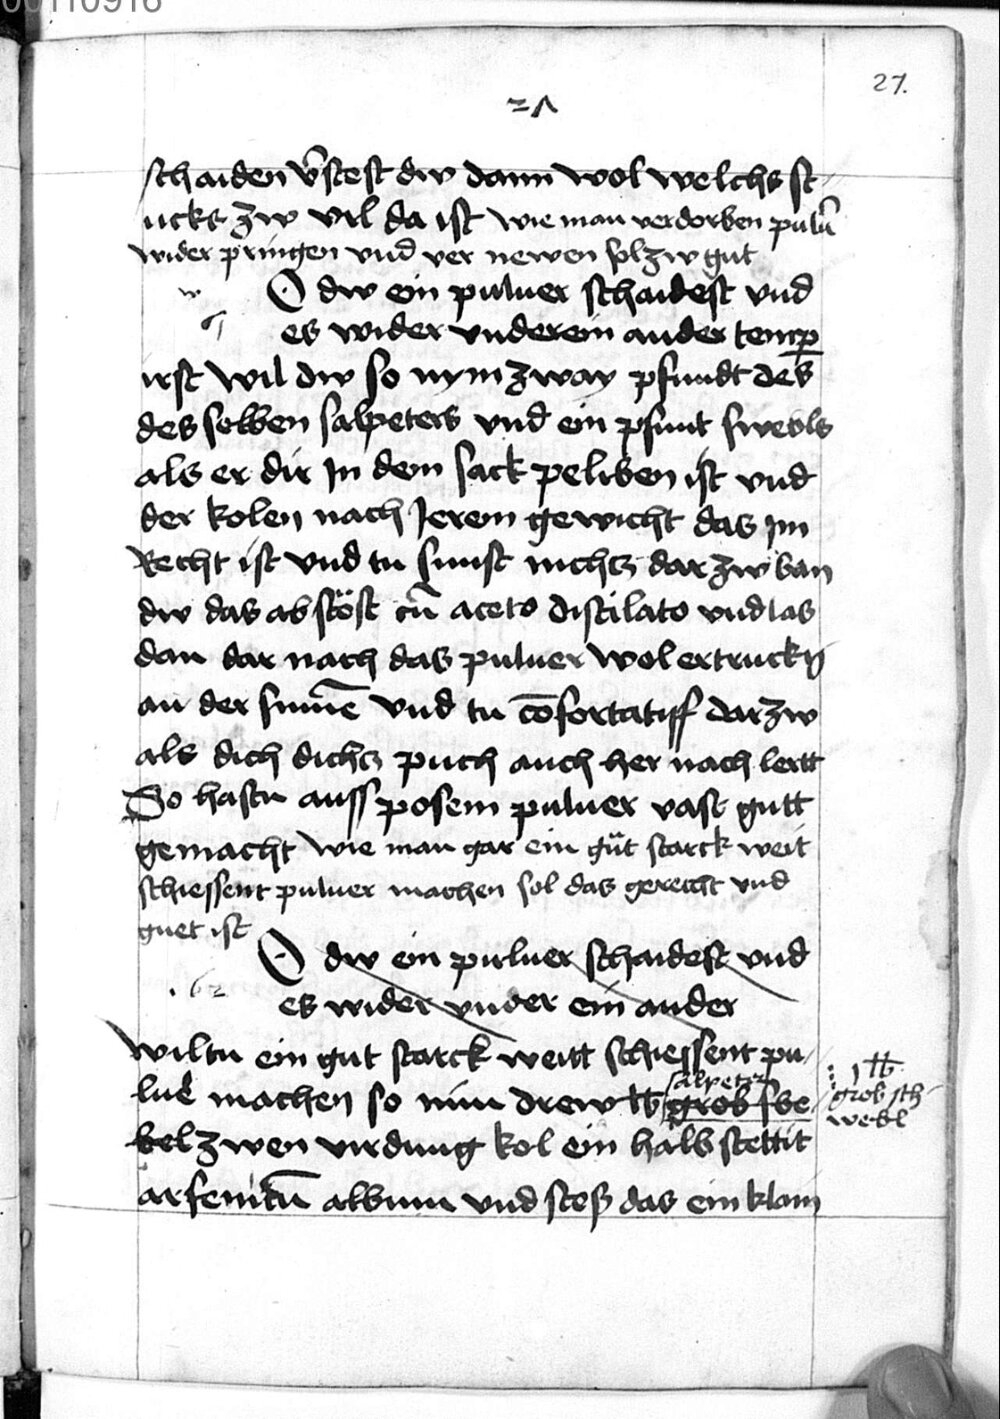 00110916
27.
28
schaiden v̄stest dw dann wol welchs st
ucks zw vil da ist wie man verdorben pulū
wider pringen vnd ver newen sol zw gut
w O dw ein puluer schaidest vnd
es wider vnderein ander temp
irst wil dw so nym zway pfundt des
des selben salpeters vnd ein pfunt swebls
als er dir In dem sack peliben ist vnd
der kolen nach Jerem gewicht das Im
Recht ist vnd tu sunst nichtz dar zw ban
dw das ab stöst cū aceto distilato vnd las
dan dar nach das puluer wol ertruckn
an der sunē vnd tu cōfortatiff darzw
als dich dichtz puch auch her nach lertt
So hastu auss posem puluer vast gutt
gemacht wie man gar ein gůt starck weit
schiessent puluer machen sol das gerecht vnd
guet ist
O dw ein puluer schaidest vnd
es wider vnder ein ander
wiltu ein gut starck weitt schiessent pu
luer machen so nim drew lb grob swe
salpeter
: 1 lb
grob sch
webl
bel zwen virdung kol ein halb stettit
arsenicū album vnd stoss das ein klain